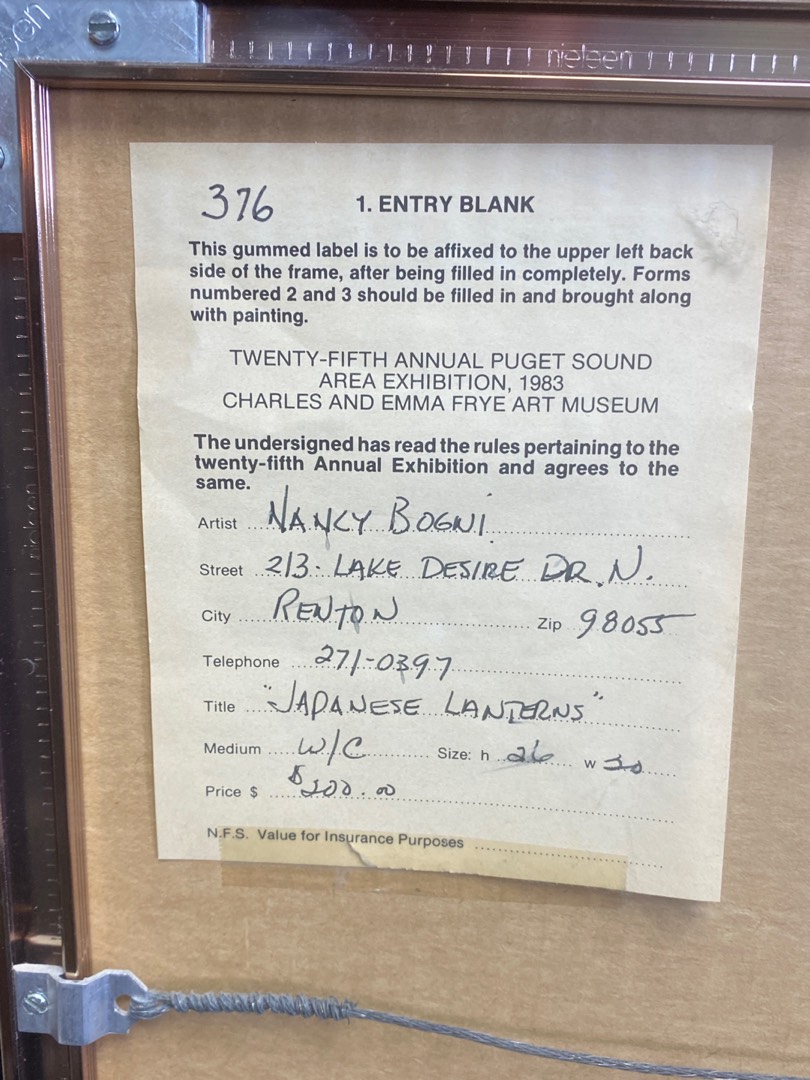 nielsen
376 1. ENTRY BLANK
This gummed label is to be affixed to the upper left back
side of the frame, after being filled in completely. Forms
numbered 2 and 3 should be filled in and brought along
with painting.
TWENTY-FIFTH ANNUAL PUGET SOUND
AREA EXHIBITION, 1983
CHARLES AND EMMA FRYE ART MUSEUM
The undersigned has read the rules pertaining to the
twenty-fifth Annual Exhibition and agrees to the
same.
Artist NANCY BOGNI
Street 213 - LAKE DESIRE DR. N.
City RENTON Zip 98055
Telephone 271-0397
Title "JAPANESE LANTERNS"
Medium W/C Size: h 26 w 30
Price $ $200.00
N.F.S. Value for Insurance Purposes